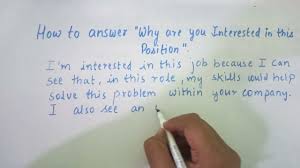 How to answer "Why are you Interested in this
Position".
I'm interested in this job because I can
see that, in this role, my skills could help
solve this problem within your company.
I also see an